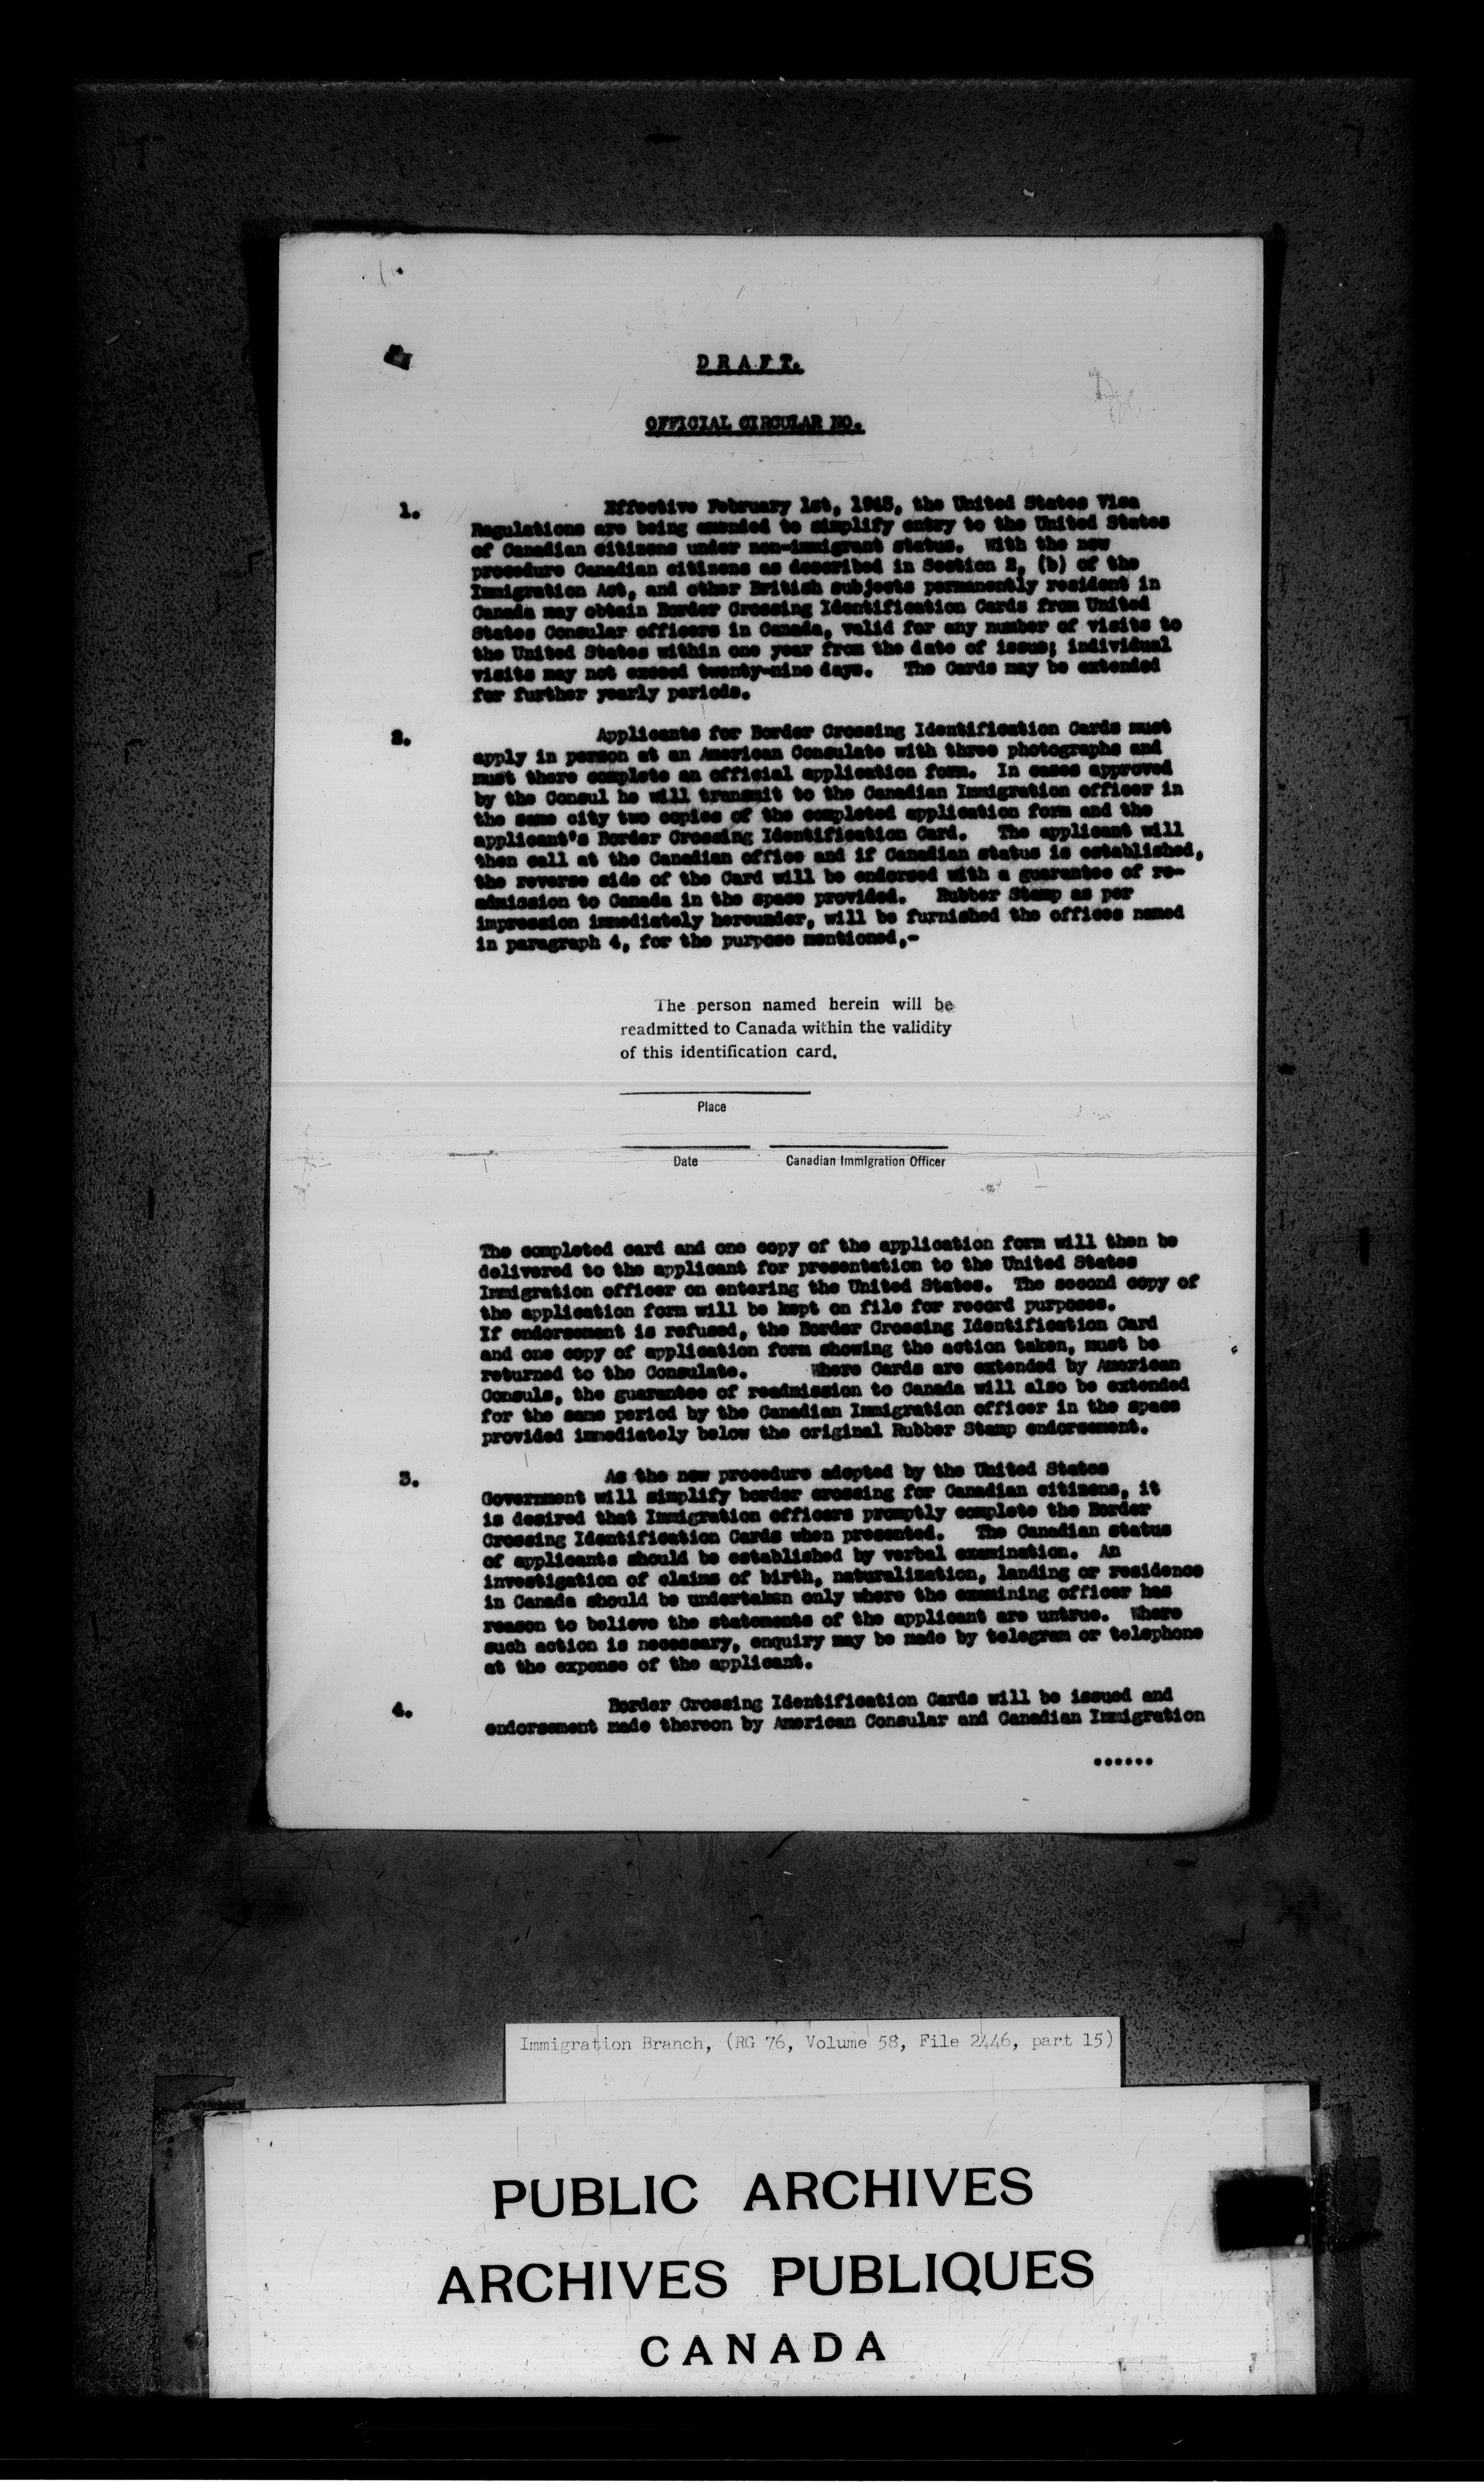 DRAFT.
OFFICIAL CIRCULAR NO.
1. Effective February 1st, 1945, the United States Visa
Regulations are being amended to simplify entry to the United States
of Canadian citizens under non-immigrant status. With the new
procedure Canadian citizens as described in Section 2, (b) of the
Immigration Act, and other British subjects permanently resident in
Canada may obtain Border Crossing Identification Cards from United
States Consular officers in Canada, valid for any number of visits to
the United States within one year from the date of issue; individual
visits may not exceed twenty-nine days. The Cards may be extended
for further yearly periods.
2. Applicants for Border Crossing Identification Cards must
apply in person at an American Consulate with three photographs and
must there complete an official application form. In cases approved
by the Consul he will transmit to the Canadian Immigration officer in
the same city two copies of the completed application form and the
applicant's Border Crossing Identification Card. The applicant will
then call at the Canadian office and if Canadian status is established,
the reverse side of the Card will be endorsed with a guarantee of re-
admission to Canada in the space provided. Rubber Stamp as per
impression immediately hereunder, will be furnished the offices named
in paragraph 4, for the purpose mentioned,-
The person named herein will be
readmitted to Canada within the validity
of this identification card.
Place
Date Canadian Immigration Officer
The completed card and one copy of the application form will then be
delivered to the applicant for presentation to the United States
Immigration officer on entering the United States. The second copy of
the application form will be kept on file for record purposes.
If endorsement is refused, the Border Crossing Identification Card
and one copy of application form showing the action taken, must be
returned to the Consulate. Where Cards are extended by American
Consuls, the guarantee of readmission to Canada will also be extended
for the same period by the Canadian Immigration officer in the space
provided immediately below the original Rubber Stamp endorsement.
3. As the new procedure adopted by the United States
Government will simplify border crossing for Canadian citizens, it
is desired that Immigration officers promptly complete the Border
Crossing Identification Cards when presented. The Canadian status
of applicants should be established by verbal examination. An
investigation of claims of birth, naturalization, landing or residence
in Canada should be undertaken only where the examining officer has
reason to believe the statements of the applicant are untrue. Where
such action is necessary, enquiry may be made by telegram or telephone
at the expense of the applicant.
4. Border Crossing Identification Cards will be issued and
endorsement made thereon by American Consular and Canadian Immigration
......
Immigration Branch, (RG 76, Volume 58, File 2446, part 15)
PUBLIC ARCHIVES
ARCHIVES PUBLIQUES
CANADA